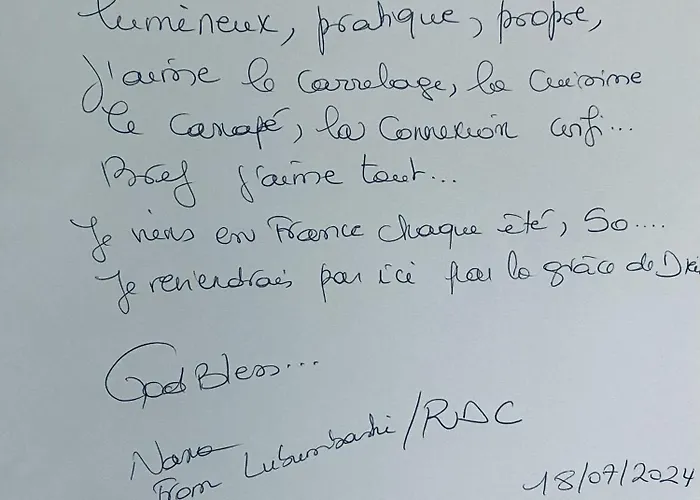 lumineux, pratique, propre,
J'aime le Carrelage, la Cuisine
le Canapé, la Connexion wifi...
Bref j'aime tout...
Je viens en France chaque été, So....
Je reviendrais par ici par la grâce de
God Bless...
Nana
From Lubumbashi/RDC
18/07/2024